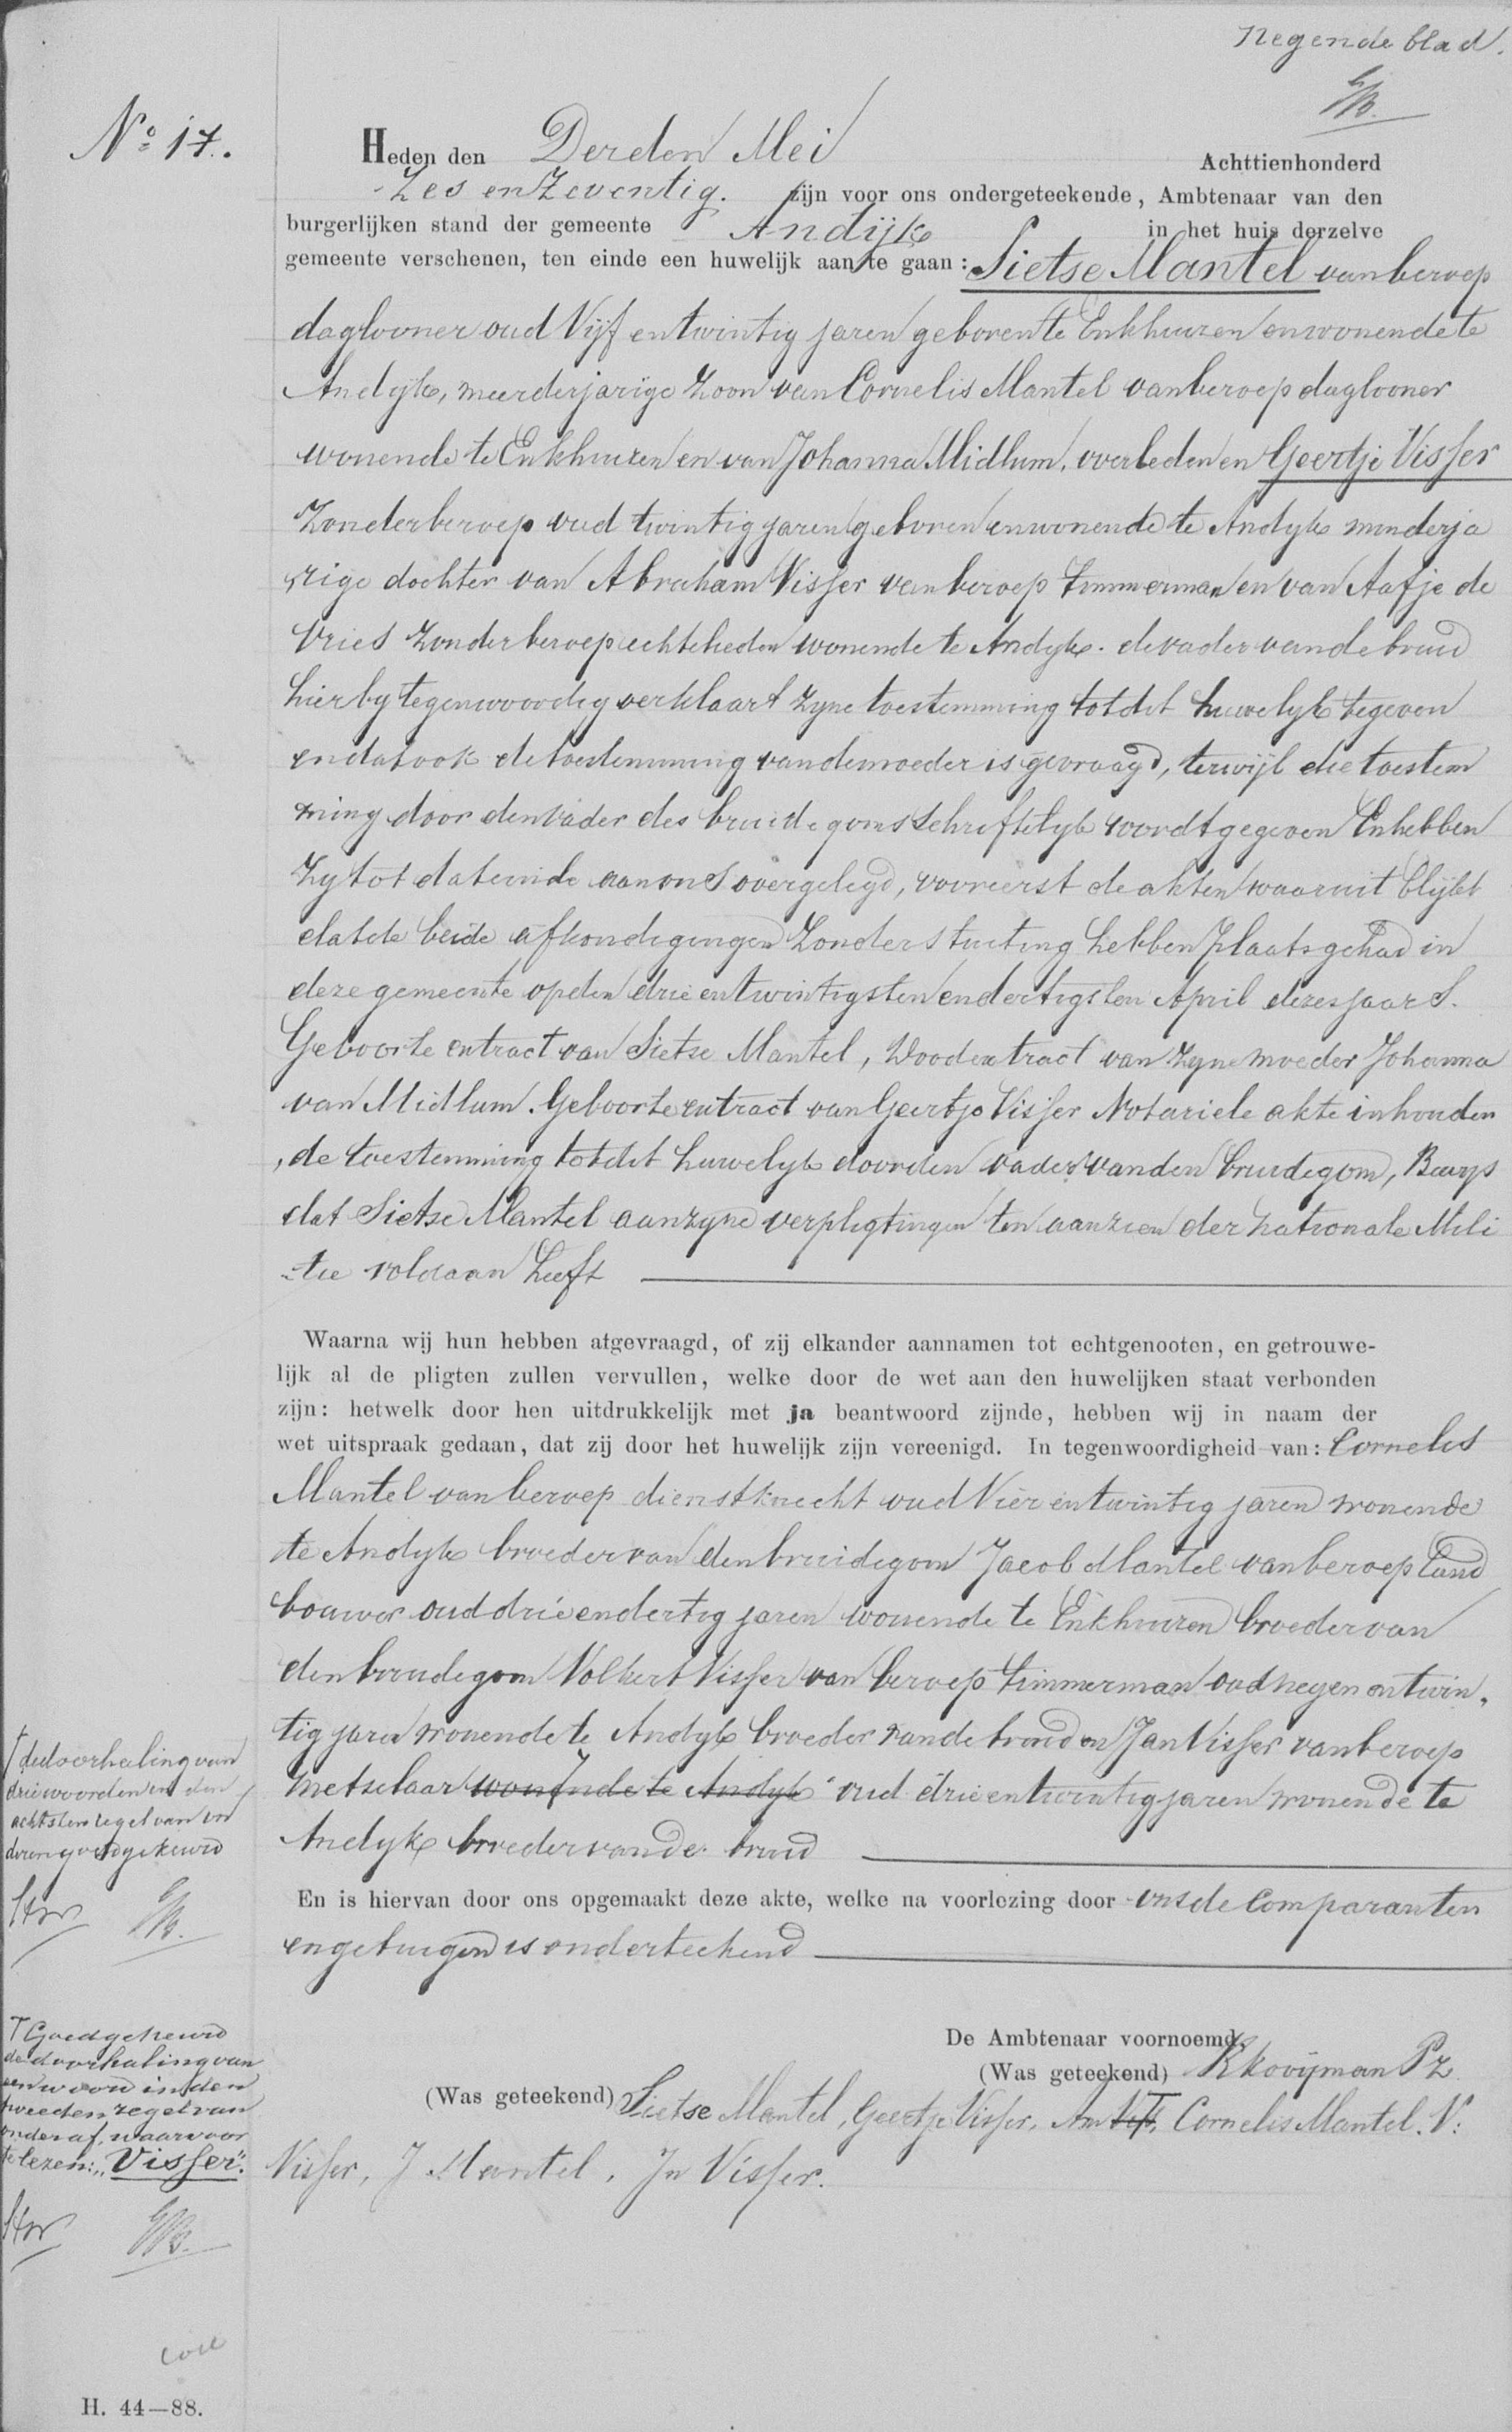 Negende blad.
No 17.
Heden den Derden Mei Achttienhonderd
Zes en Zeventig. zijn voor ons ondergeteekende, Ambtenaar van den
burgerlijken stand der gemeente Andijk in het huis derzelve
gemeente verschenen, ten einde een huwelijk aan te gaan: Sietse Mantel van beroep
daglooner oud Vijf en twintig jaren geboren te Enkhuizen en wonende te
Andijk, meerderjarige Zoon van Cornelis Mantel van beroep daglooner
wonende te Enkhuizen en van Johanna Midlum, overleden en Geertje Visser
Zonder beroep oud twintig jaren geboren en wonende te Andyk minderja
rige dochter van Abraham Visser van beroep timmerman en van Aafje de
Vries Zonder beroep echtelieden wonende te Andyk. de vader van de bruid
hierby tegenwoordig verklaart zyne toestemming tot dit huwelyk te geven
en dat ook de toestemming van de moeder is gevraagd, terwijl die toestem
ming door den vader des bruidegoms schriftelyk wordt gegeven En hebben
Zy tot dat einde aan ons overgelegd, vooreerst de akten waaruit blijkt
dat de beide afkondigingen Zonder stuiting hebben plaats gehad in
deze gemeente op den drie en twintigsten en dertigsten April dezes jaars.
Geboorte extract van Sietse Mantel, Doodextract van zyne moeder Johanna
van Midlum. Geboorte extract van Geertje Visser Notariele akte inhouden
,de toestemming tot dit huwelyk door den vader van den bruidegom, Bewys
dat Sietse Mantel aan zyne verpligtingen ten aanzien der Nationale Mili
-tie voldaan heeft
Waarna wij hun hebben afgevraagd, of zij elkander aannamen tot echtgenooten, en getrouwe-
lijk al de pligten zullen vervullen, welke door de wet aan den huwelijken staat verbonden
zijn: hetwelk door hen uitdrukkelijk met ja beantwoord zijnde, hebben wij in naam der
wet uitspraak gedaan, dat zij door het huwelijk zijn vereenigd. In tegenwoordigheid van: Cornelis
Mantel van beroep dienstknecht oud Vier en twintig jaren wonende
te Andyk broeder van den bruidegom Jacob Mantel van beroep land
bouwer oud drie en dertig jaren wonende te Enkhuizen broeder van
den bruidegom Volkert Visser van beroep timmerman oud negen en twin,
tig jaren wonende te Andyk broeder van de bruid en Jan Visser van beroep
metselaar wonende te Andyk oud drie en twintig jaren wonende te
Andyk broeder van de bruid
En is hiervan door ons opgemaakt deze akte, welke na voorlezing door ons de Comparanten
en getuigen is onderteekend
De Ambtenaar voornoemd,
(Was geteekend) K Kooijman Pz
(Was geteekend) Sietse Mantel, Geertje Visser, Cornelis Mantel. V:
Visser, J Mantel, Jn Visser.
de doorhaling van
drie woorden in den
achtsten regel van on
deren goedgekeurd
Goedgekeurd
de doorhaling van
een woord in den
tweeden regel van
onder af, waarvoor
te lezen: "Visser".
H. 44—88.